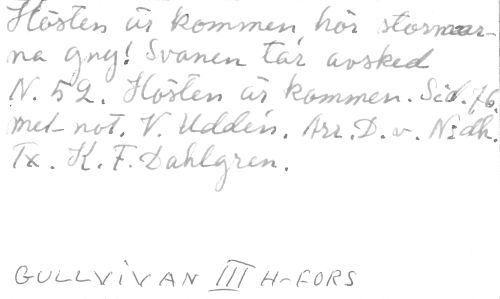 Hösten är kommen, hör stormar-
na gny! Svanen tar avsked
N. 52. Hösten är kommen. Sid. 76.
met not. V. Uddén. Arr. D. v. N:dh.
Tx. K. F. Dahlgren.
GULLVIVAN III H-FORS